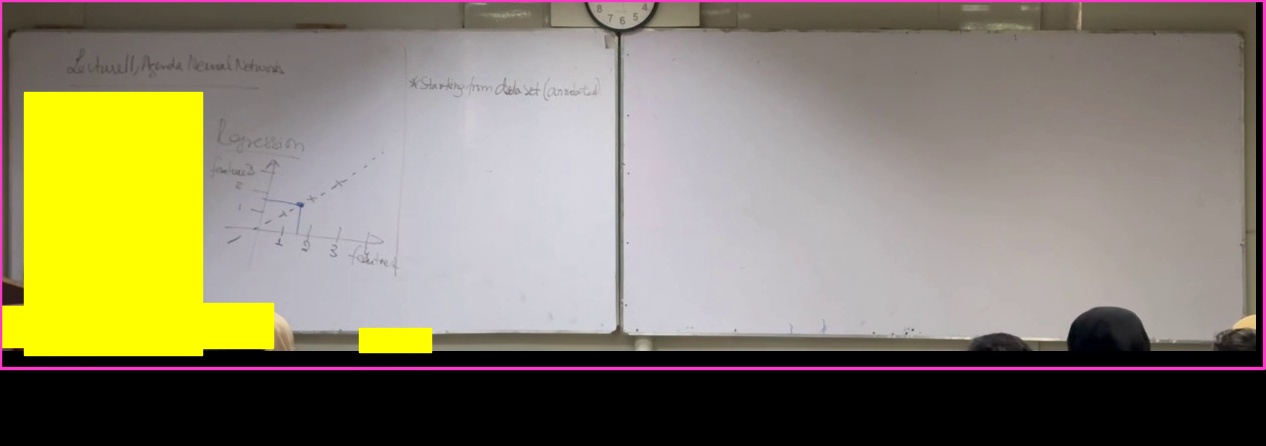 Lecture11, Agenda Neural Networks
Regression
feature2
2
1
1 2 3
feature1
*Starting from data set (annotated)
8 7 6 5 4